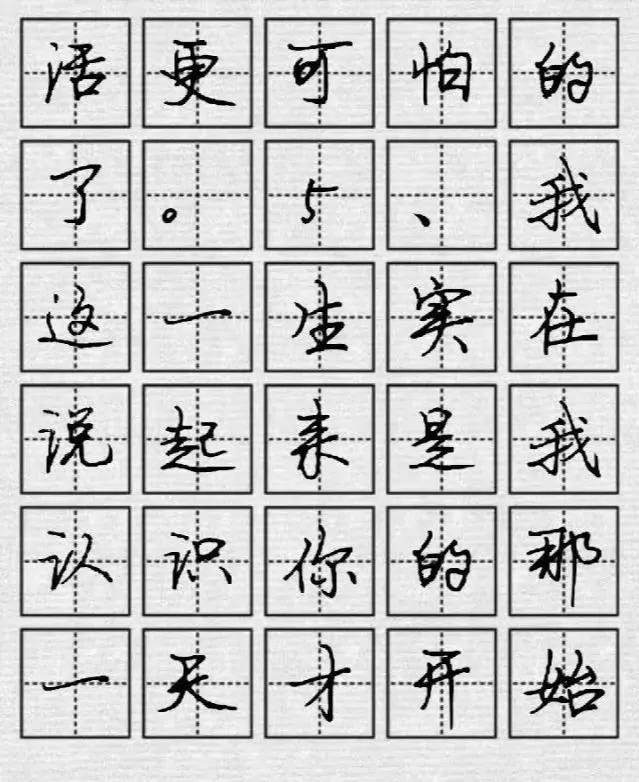 活更可怕的
了。5、我
这一生实在
说起来是我
认识你的那
一天才开始